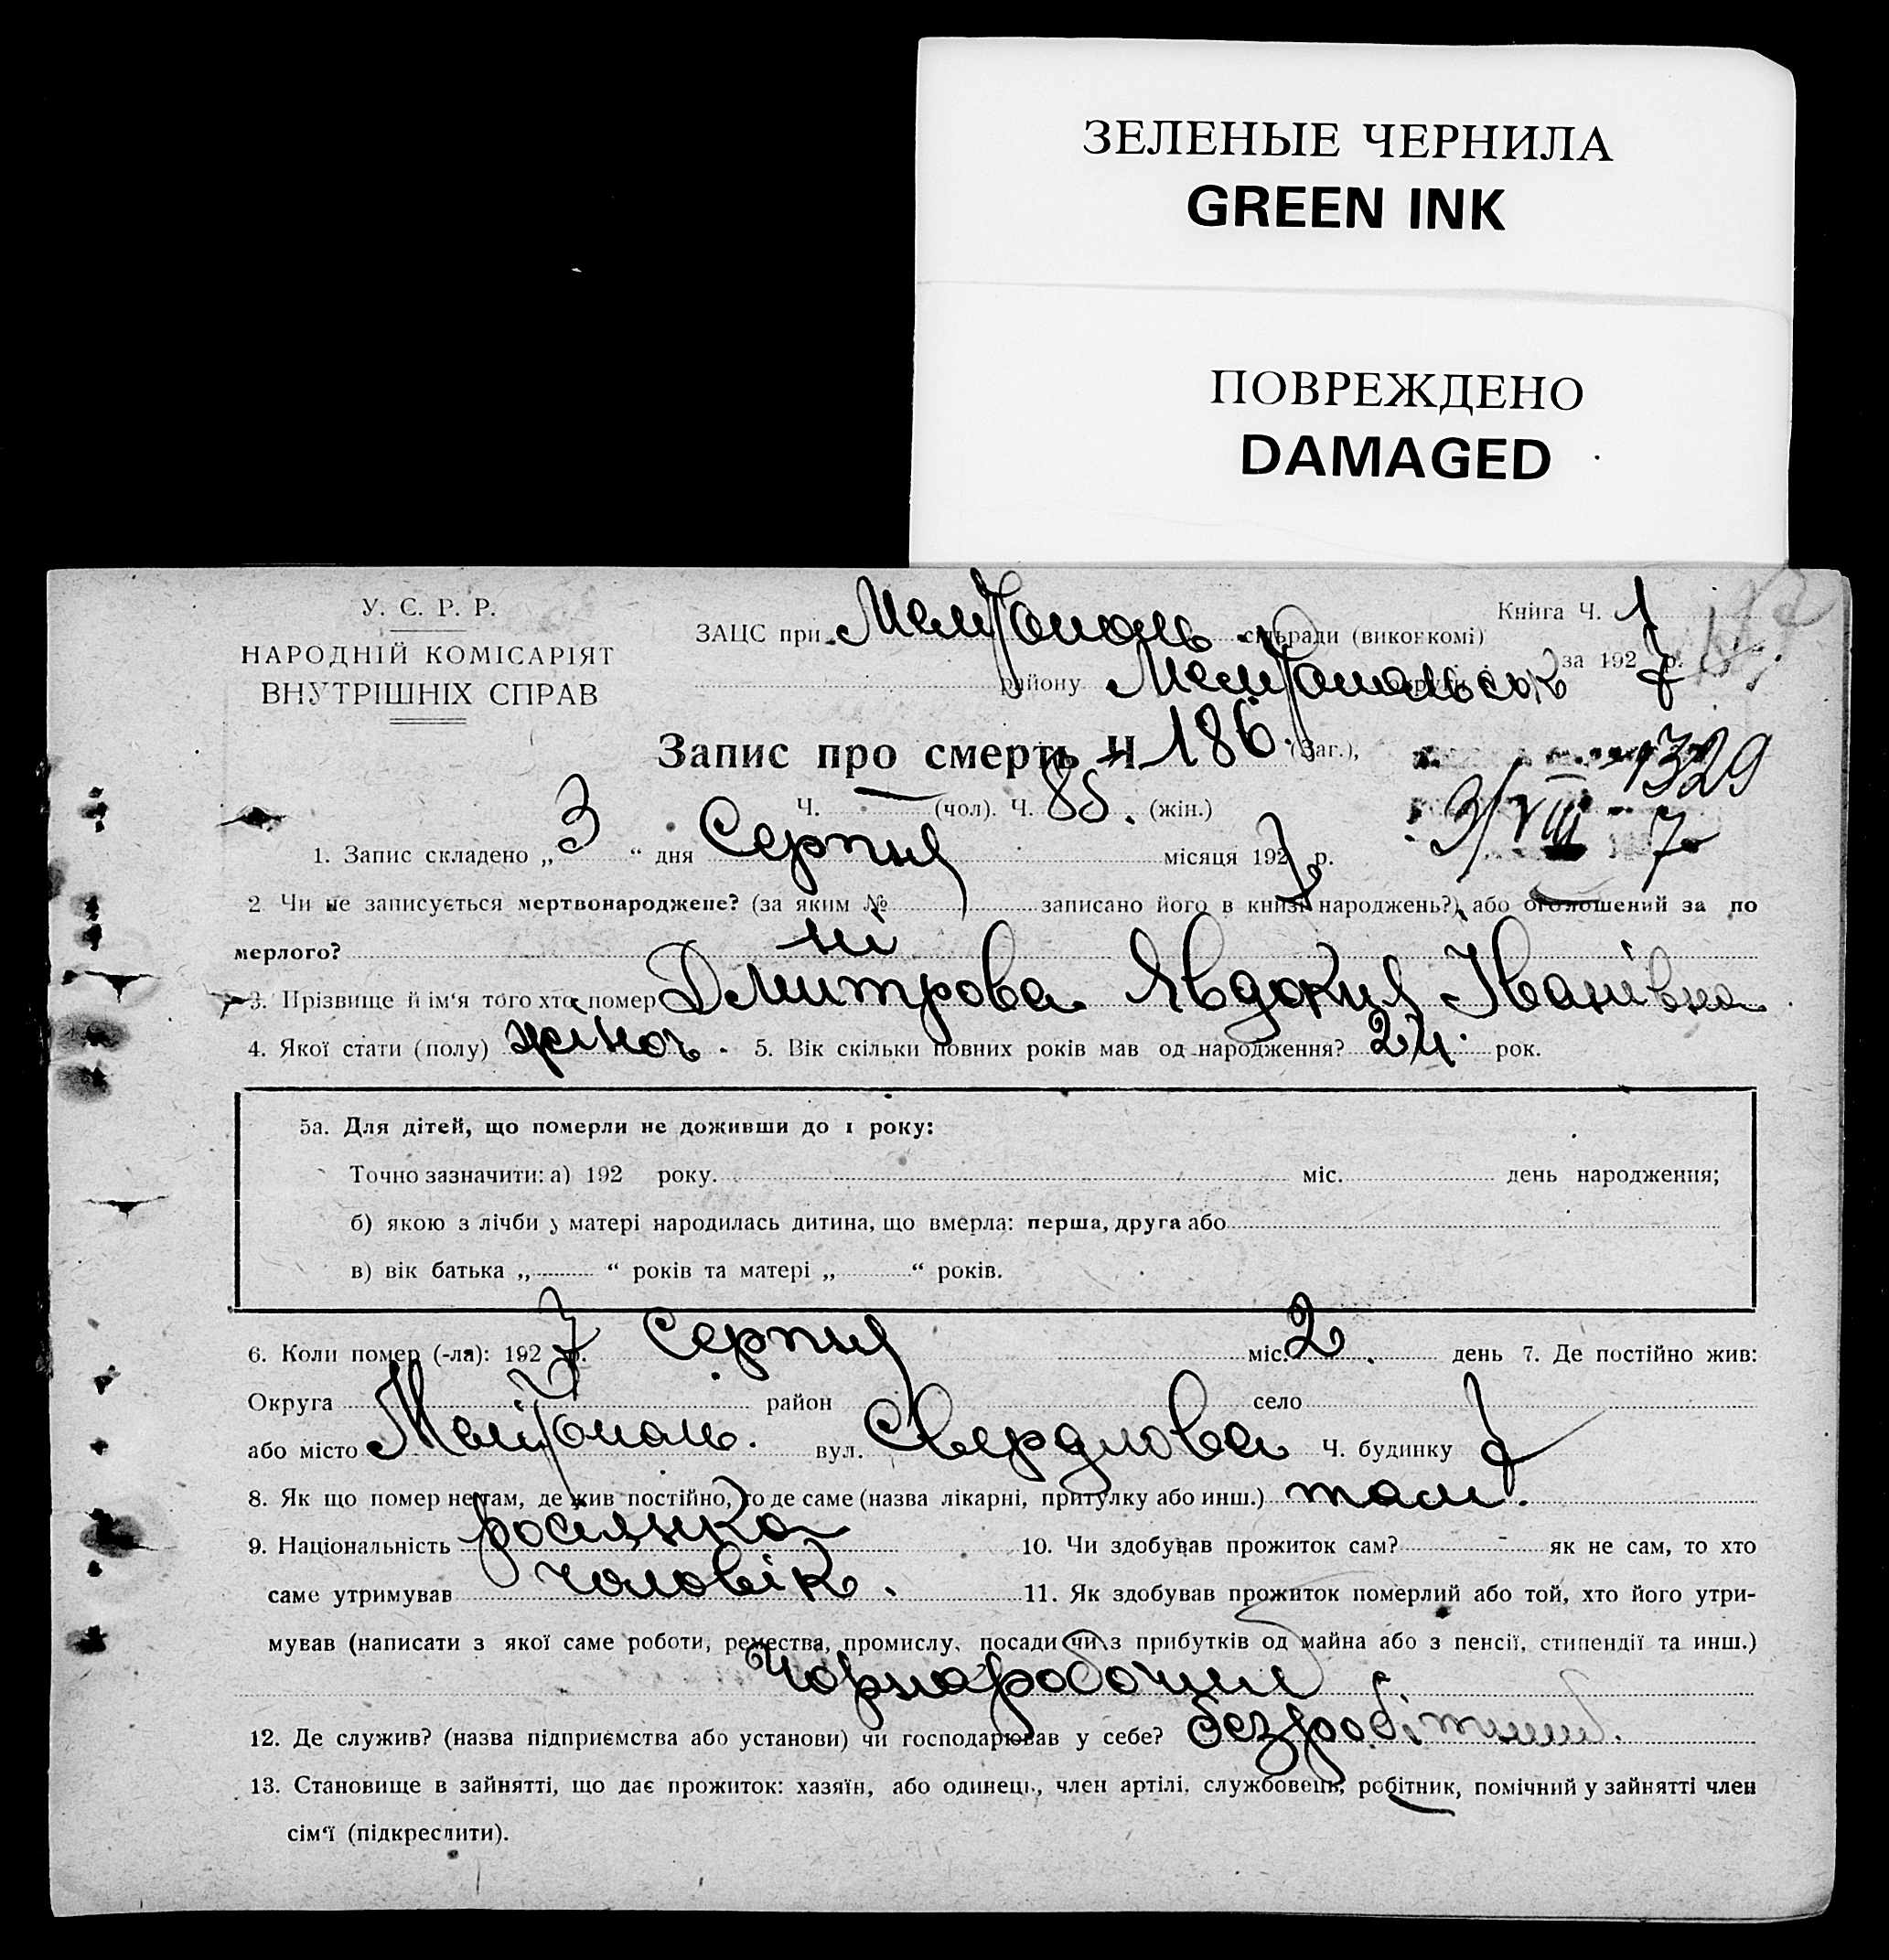 ЗЕЛЕНЫЕ ЧЕРНИЛА
GREEN INK
ПОВРЕЖДЕНО
DAMAGED
У. С. Р. Р.
НАРОДНІЙ КОМІСАРІЯТ
ВНУТРІШНІХ СПРАВ
Книга Ч. 1
ЗАЦС при Мелітополь сільради (виконкомі)
за 1927 р.
району Мелітопольськ
Запис про смерть Ч 186. (Заг.),
1329
Ч. — (чол). Ч. 85. (жін.)
3/VIII – 7
1. Запис складено „ 3 “ дня Серпня місяця 1927 р.
2 Чи не записується мертвонароджене? (за яким № записано його в книзі народжень?) або оголошений за по
мерлого? ні
3. Прізвище й ім‘я того хто помер Дмитрова Явдокия Іванівна
4. Якої стати (полу) жіноч. 5. Вік скільки повних років мав од народження? 24. рок.
5а. Для дітей, що померли не доживши до 1 року:
Точно зазначити: а) 192 року. міс. день народження;
б) якою з лічби у матері народилась дитина, що вмерла: перша, друга або
в) вік батька „ “ років та матері „ “ років.
6. Коли помер (-ла): 1927 р. Серпня міс. 2. день 7. Де постійно жив:
Округа район село
або місто Мелітополь. вул. Свердлова Ч. будинку
8. Як що помер не там, де жив постійно, то де саме (назва лікарні, притулку або инш.) там.
9. Національність росіянка 10. Чи здобував прожиток сам? - як не сам, то хто
саме утримував чоловік. 11. Як здобував прожиток померлий або той, хто його утри-
мував (написати з якої саме роботи, ремества, промислу, посади чи з прибутків од майна або з пенсії, стипендії та инш.)
Чорноробочий
12. Де служив? (назва підприємства або установи) чи господарював у себе? безробітний.
13. Становище в зайнятті, що дає прожиток: хазяїн, або одинець, член артілі, службовець, робітник, помічний у зайнятті член
сім‘ї (підкреслити).